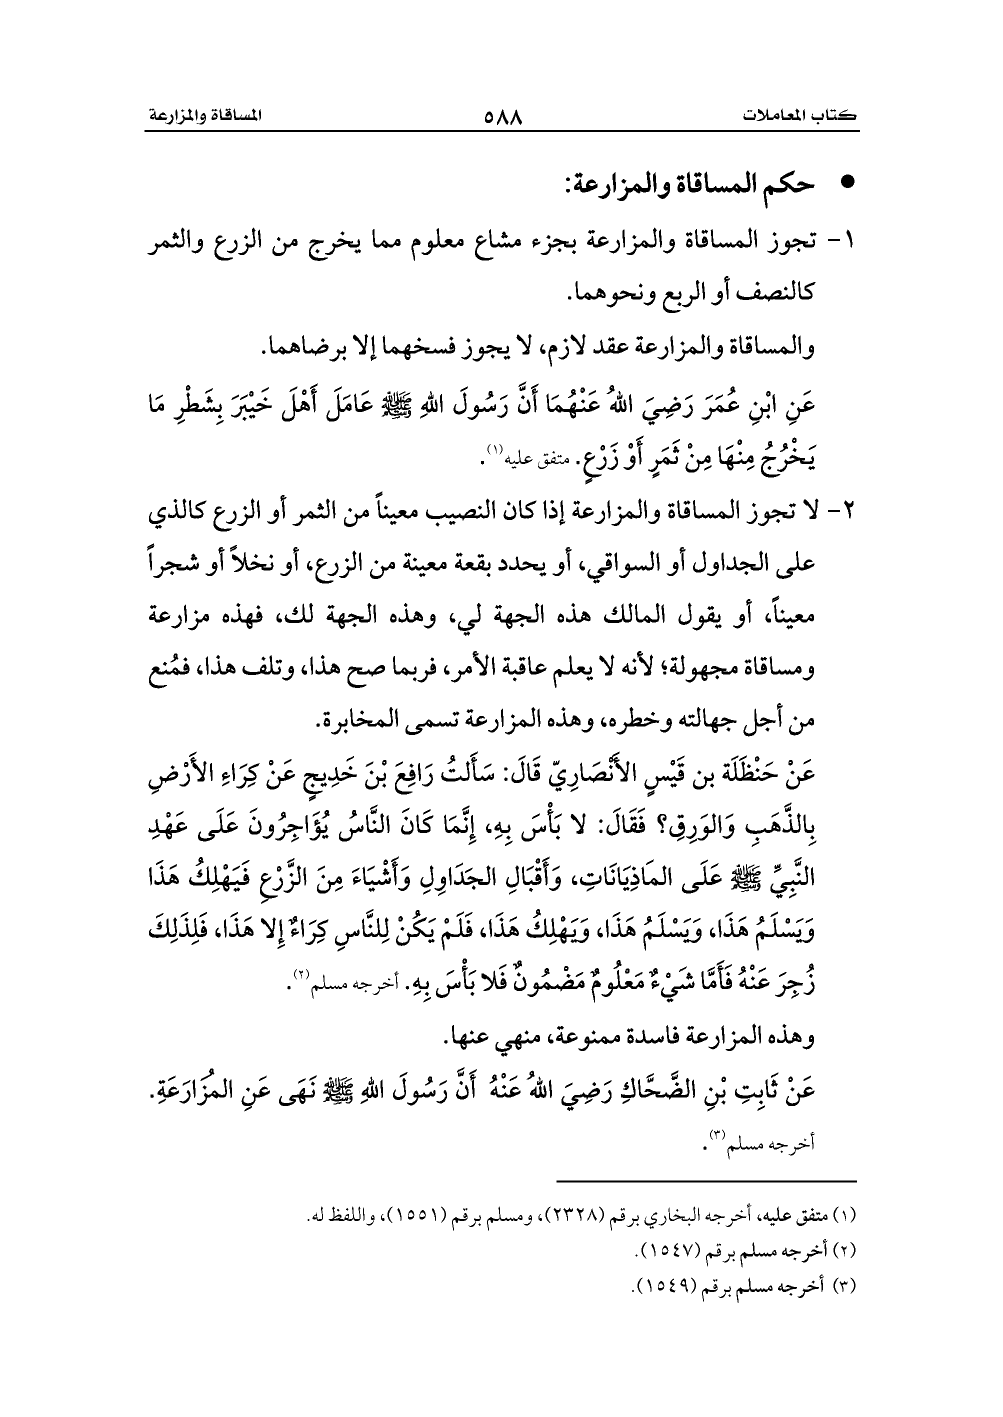 كتاب المعاملات ٥٨٨ المساقاة والمزارعة
● حكم المساقاة والمزارعة:
١- تجوز المساقاة والمزارعة بجزء مشاع معلوم مما يخرج من الزرع والثمر
كالنصف أو الربع ونحوهما.
والمساقاة والمزارعة عقد لازم، لا يجوز فسخهما إلا برضاهما.
عَنِ ابْنِ عُمَرَ رَضِيَ اللهُ عَنْهُمَا أَنَّ رَسُولَ اللهِ ﷺ عَامَلَ أَهْلَ خَيْبَرَ بِشَطْرِ مَا
يَخْرُجُ مِنْهَا مِنْ ثَمَرٍ أَوْ زَرْعٍ. متفق عليه(١).
٢- لا تجوز المساقاة والمزارعة إذا كان النصيب معيناً من الثمر أو الزرع كالذي
على الجداول أو السواقي، أو يحدد بقعة معينة من الزرع، أو نخلاً أو شجراً
معيناً، أو يقول المالك هذه الجهة لي، وهذه الجهة لك، فهذه مزارعة
ومساقاة مجهولة؛ لأنه لا يعلم عاقبة الأمر، فربما صح هذا، وتلف هذا، فمُنع
من أجل جهالته وخطره، وهذه المزارعة تسمى المخابرة.
عَنْ حَنْظَلَة بن قَيْسٍ الأَنْصَارِيّ قَالَ: سَأَلتُ رَافِعَ بْنَ خَدِيجٍ عَنْ كِرَاءِ الأَرْضِ
بِالذَّهَبِ وَالوَرِقِ؟ فَقَالَ: لا بَأْسَ بِهِ، إِنَّمَا كَانَ النَّاسُ يُؤَاجِرُونَ عَلَى عَهْدِ
النَّبِيِّ ﷺ عَلَى المَاذِيَانَاتِ، وَأَقْبَالِ الجَدَاوِلِ وَأَشْيَاءَ مِنَ الزَّرْعِ فَيَهْلِكُ هَذَا
وَيَسْلَمُ هَذَا، وَيَسْلَمُ هَذَا، وَيَهْلِكُ هَذَا، فَلَمْ يَكُنْ لِلنَّاسِ كِرَاءٌ إِلا هَذَا، فَلِذَلِكَ
زُجِرَ عَنْهُ فَأَمَّا شَيْءٌ مَعْلُومٌ مَضْمُونٌ فَلا بَأْسَ بِهِ. أخرجه مسلم(٢).
وهذه المزارعة فاسدة ممنوعة، منهي عنها.
عَنْ ثَابِتِ بْنِ الضَّحَّاكِ رَضِيَ اللهُ عَنْهُ أَنَّ رَسُولَ اللهِ ﷺ نَهَى عَنِ المُزَارَعَةِ.
أخرجه مسلم(٣).
(١) متفق عليه، أخرجه البخاري برقم (٢٣٢٨)، ومسلم برقم (١٥٥١)، واللفظ له.
(٢) أخرجه مسلم برقم (١٥٤٧).
(٣) أخرجه مسلم برقم (١٥٤٩).